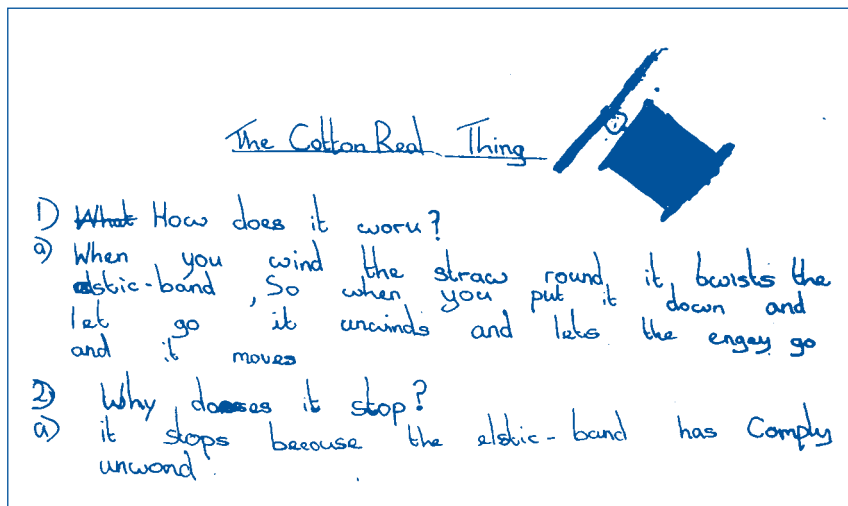 The Cotton Real Thing
1) What How does it work?
a) When you wind the straw round it twists the
elstic-band, So when you put it down and
let go it unwinds and lets the engey go
and it moves
2) Why doses it stop?
a) it stops becouse the elstic-band has Comply
unwond.